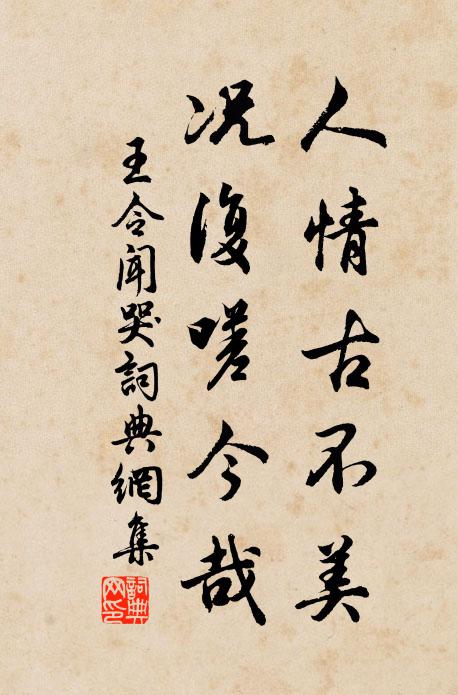 人情古不美
况復嗟今哉
王令聞哭詞典網集
詞典
网印